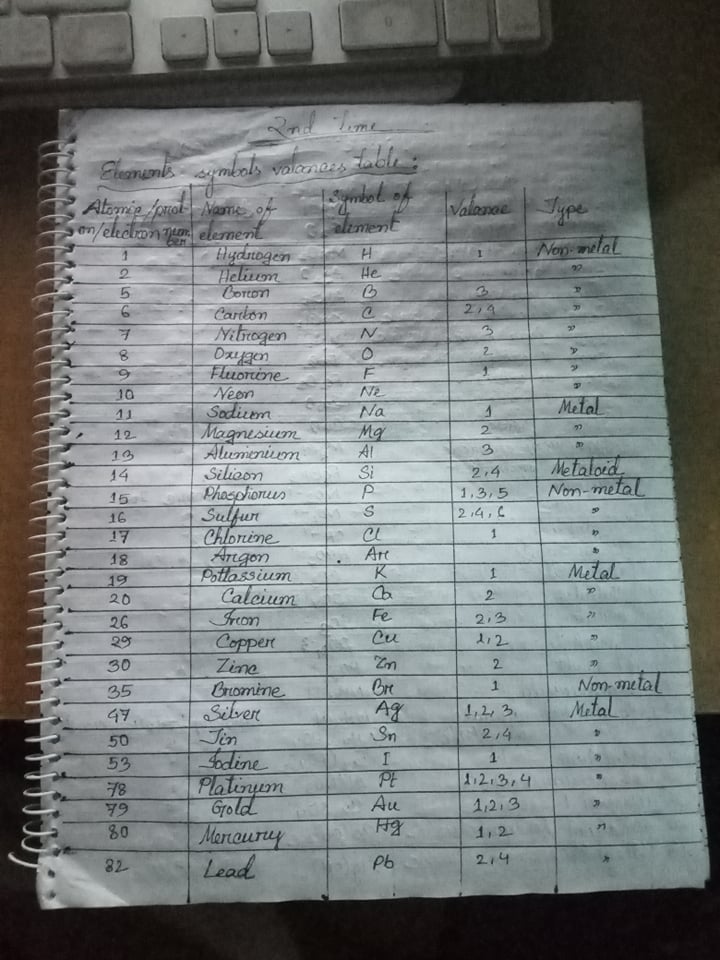 2nd time
Elements symbols valances table:
Atomic/prot- Name of Symbol of Valance Type
on/electron num element element
ber
1 Hydrogen H 1 Non-metal
2 Helium He "
5 Boron B 3 "
6 Carbon C 2,4 "
7 Nitrogen N 3 "
8 Oxygen O 2 "
9 Fluorine F 1 "
10 Neon Ne "
11 Sodium Na 1 Metal
12 Magnesium Mg 2 "
13 Aluminium Al 3 "
14 Silicon Si 2,4 Metaloid
15 Phosphorus P 1,3,5 Non-metal
16 Sulfur S 2,4,6 "
17 Chlorine Cl 1 "
18 Argon Ar "
19 Pottassium K 1 Metal
20 Calcium Ca 2 "
26 Iron Fe 2,3 "
29 Copper Cu 1,2 "
30 Zinc Zn 2 "
35 Bromine Br 1 Non-metal
47 Silver Ag 1,2,3 Metal
50 Tin Sn 2,4 "
53 Iodine I 1 "
78 Platinum Pt 1,2,3,4 "
79 Gold Au 1,2,3 "
80 Mercury Hg 1,2 "
82 Lead Pb 2,4 "